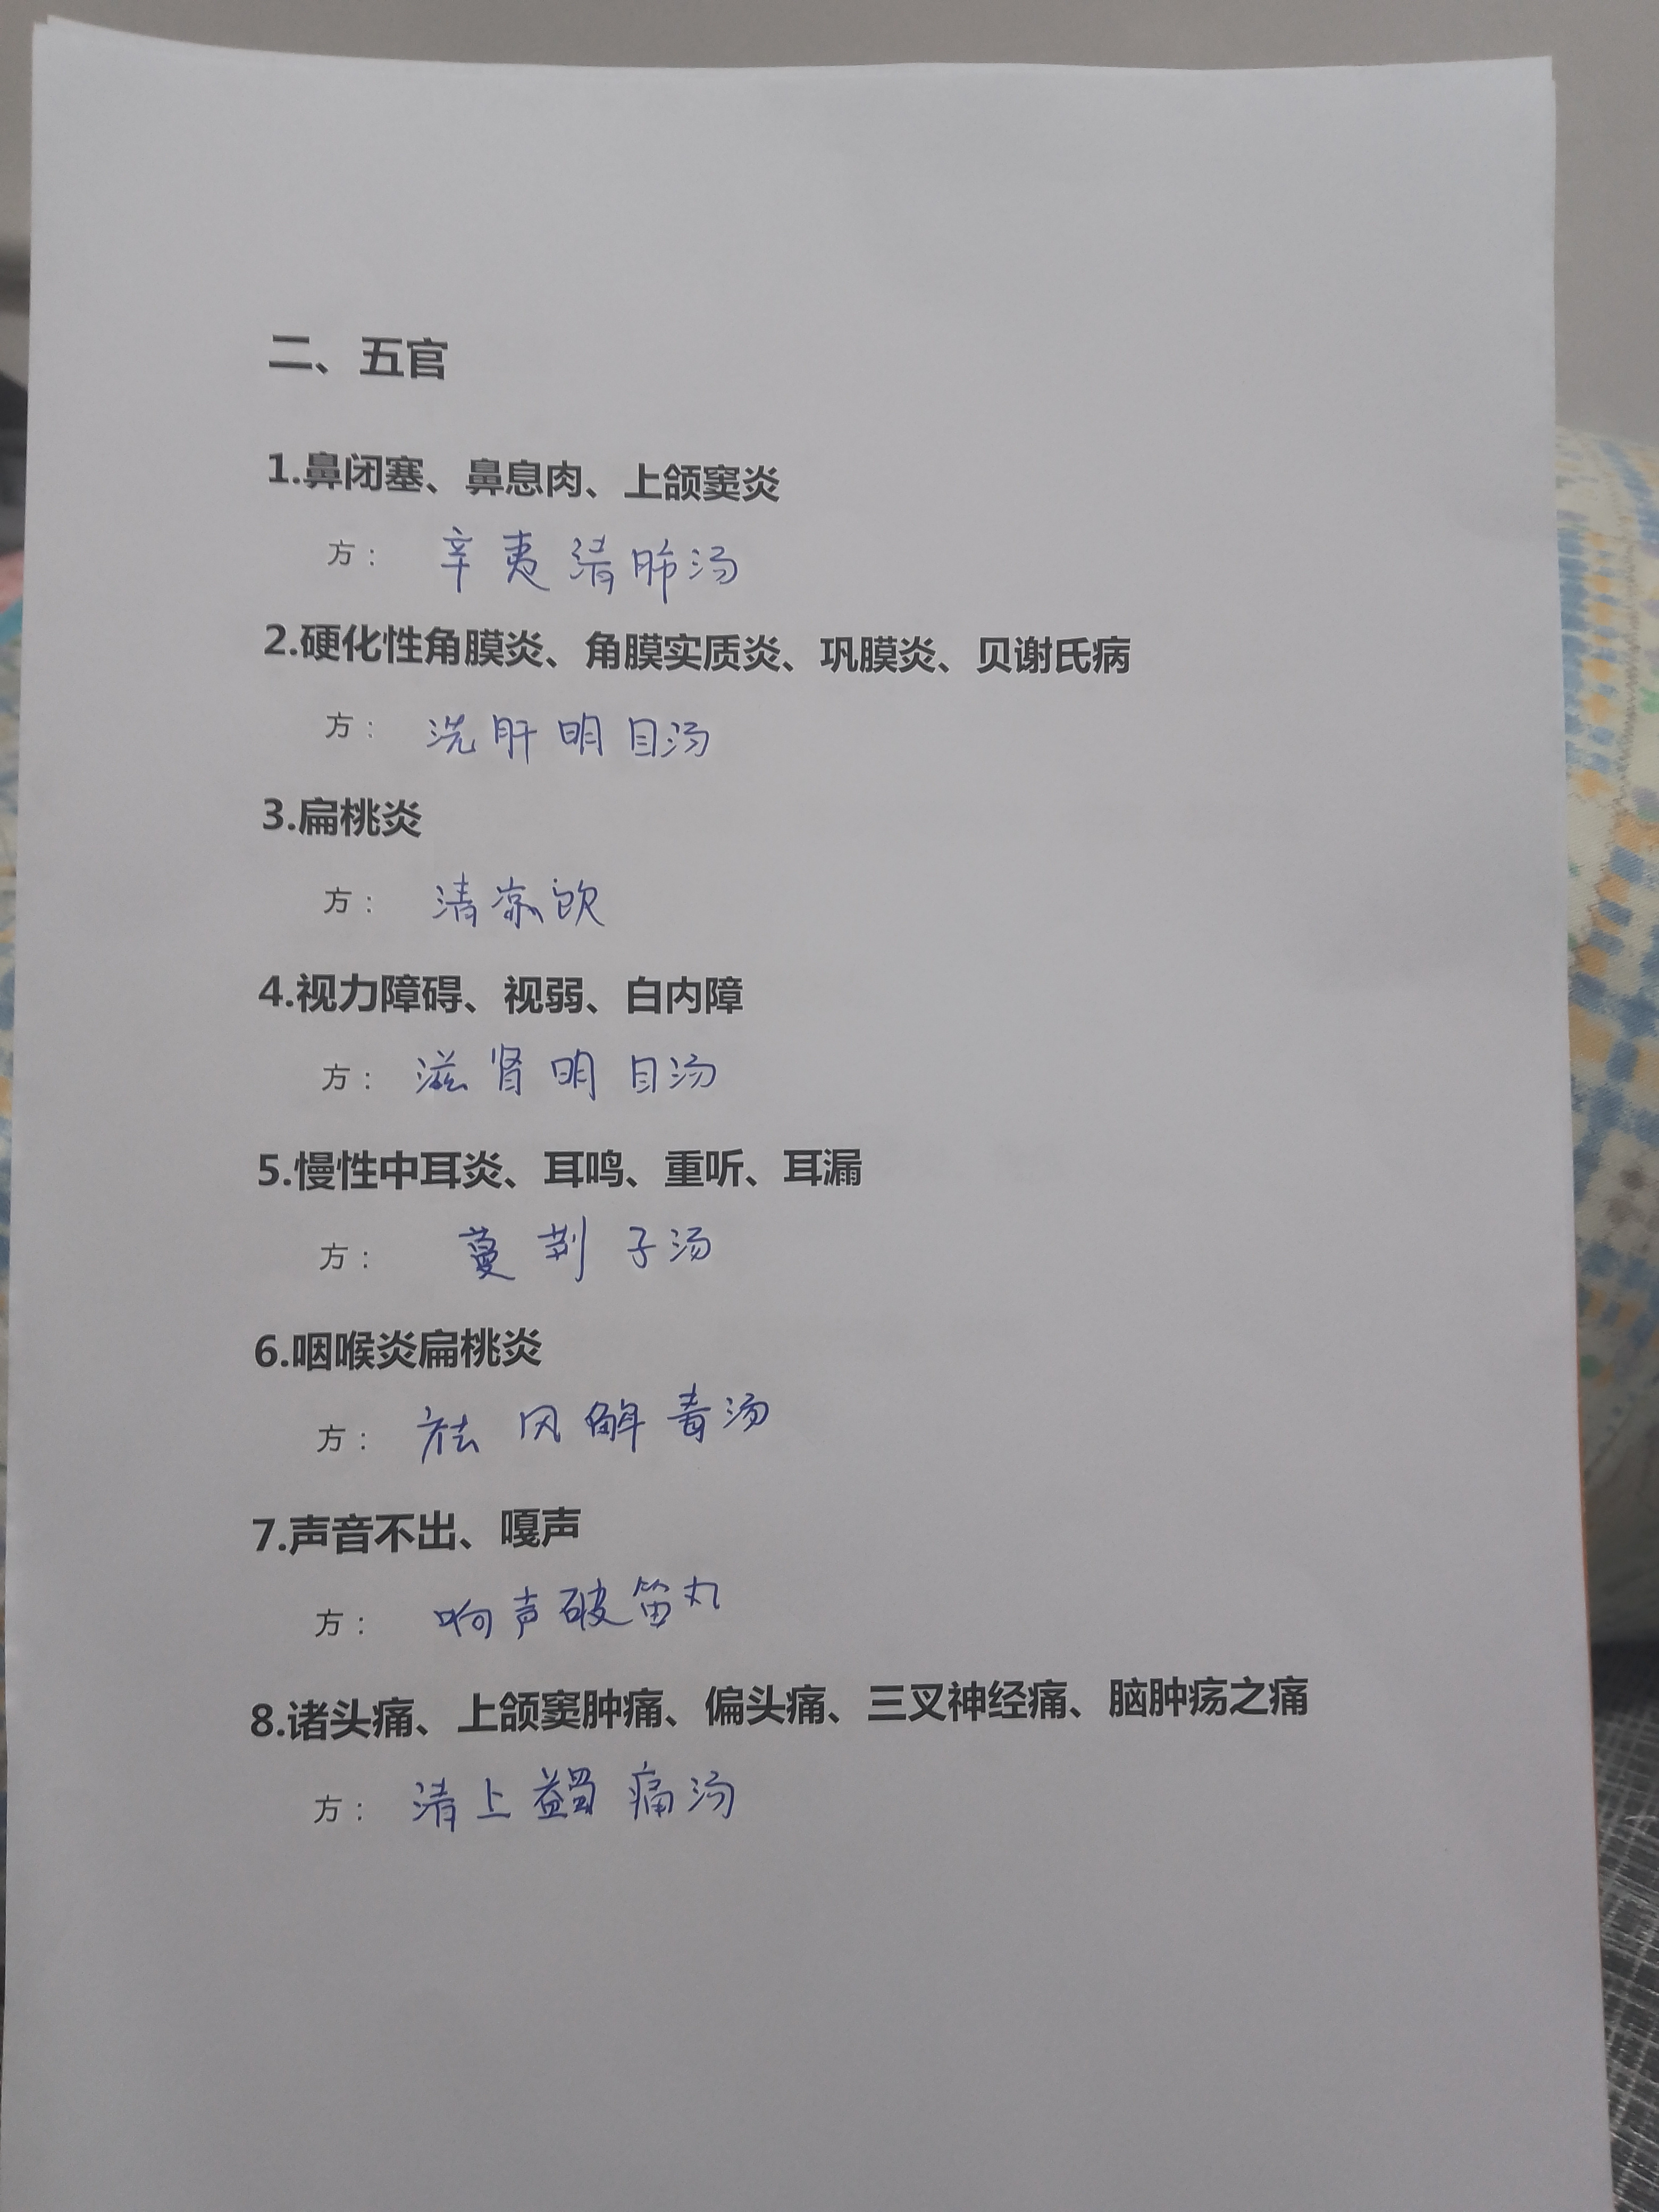 二、五官
1.鼻闭塞、鼻息肉、上颌窦炎
方： 辛夷清肺汤
2.硬化性角膜炎、角膜实质炎、巩膜炎、贝谢氏病
方： 洗肝明目汤
3.扁桃炎
方： 清凉饮
4.视力障碍、视弱、白内障
方： 滋肾明目汤
5.慢性中耳炎、耳鸣、重听、耳漏
方： 蔓荆子汤
6.咽喉炎扁桃炎
方： 祛风解毒汤
7.声音不出、嘎声
方： 响声破笛丸
8.诸头痛、上颌窦肿痛、偏头痛、三叉神经痛、脑肿疡之痛
方： 清上蠲痛汤